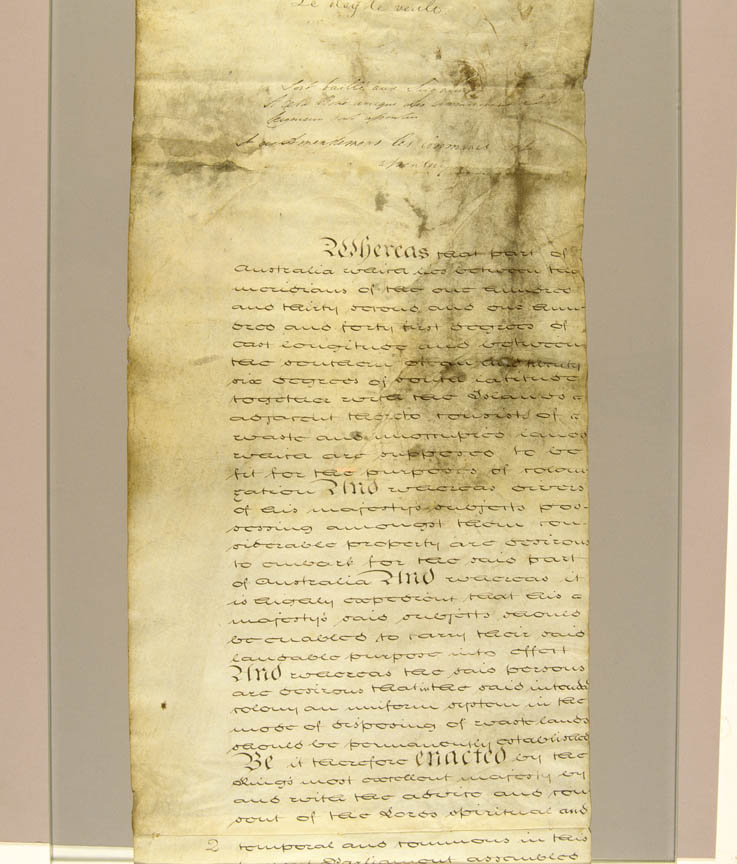 Le Roy le veult
Soit baillé aux Seigneurs
A ces Amendemens les Communes
Whereas that part of
Australia which lies between the
meridians of the one hundred
and thirty second and one hun
dred and forty first degrees of
east longitude and between
the southern ocean and twenty
six degrees of south latitude
together with the Islands
adjacent thereto consists of
waste and unoccupied lands
which are supposed to be
fit for the purposes of coloni
zation And whereas divers
of his majesty's subjects pos
sessing amongst them con
siderable property are desirous
to embark for the said part
of Australia And whereas it
is highly expedient that his
majesty's said subjects should
be enabled to carry their said
laudable purpose into effect
And whereas the said persons
are desirous that in the said intended
colony an uniform system in the
mode of disposing of waste lands
should be permanently established
Be it therefore enacted by the
king's most excellent majesty by
and with the advice and con
sent of the Lords spiritual and
2 temporal and commons in this
Parliament assembled